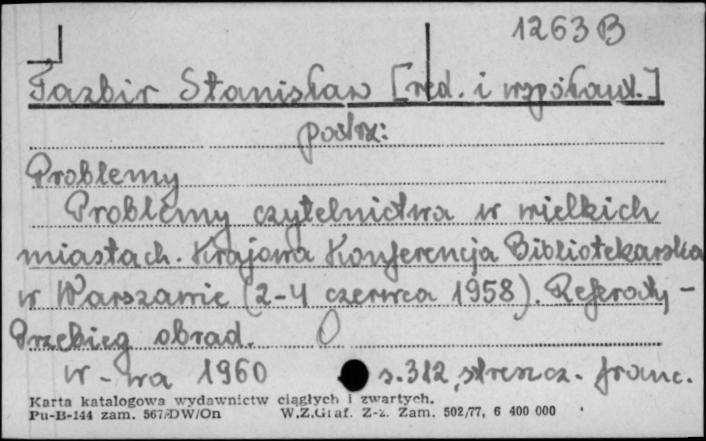 1263B
Tazbir Stanisław [red. i współaut.]
patrz:
Problemy
Problemy czytelnictwa w wielkich
miastach. Krajowa Konferencja Bibliotekarska
w Warszawie (2-4 czerwca 1958). Referaty -
Przebieg obrad. O
W-wa 1960 s. 312, streszcz. franc.
Karta katalogowa wydawnictw ciągłych i zwartych.
Pu-B-144 zam. 567/DW/On W.Z.Graf. Z-z. Zam. 502/77, 6 400 000